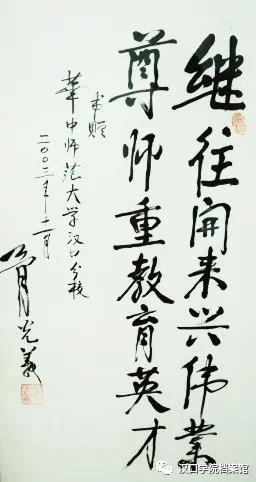 继往開来兴伟業
尊师重教育英才
贈
華中师范大学汉口分校
二〇〇三年十二月
肖光義
汉口学院档案馆